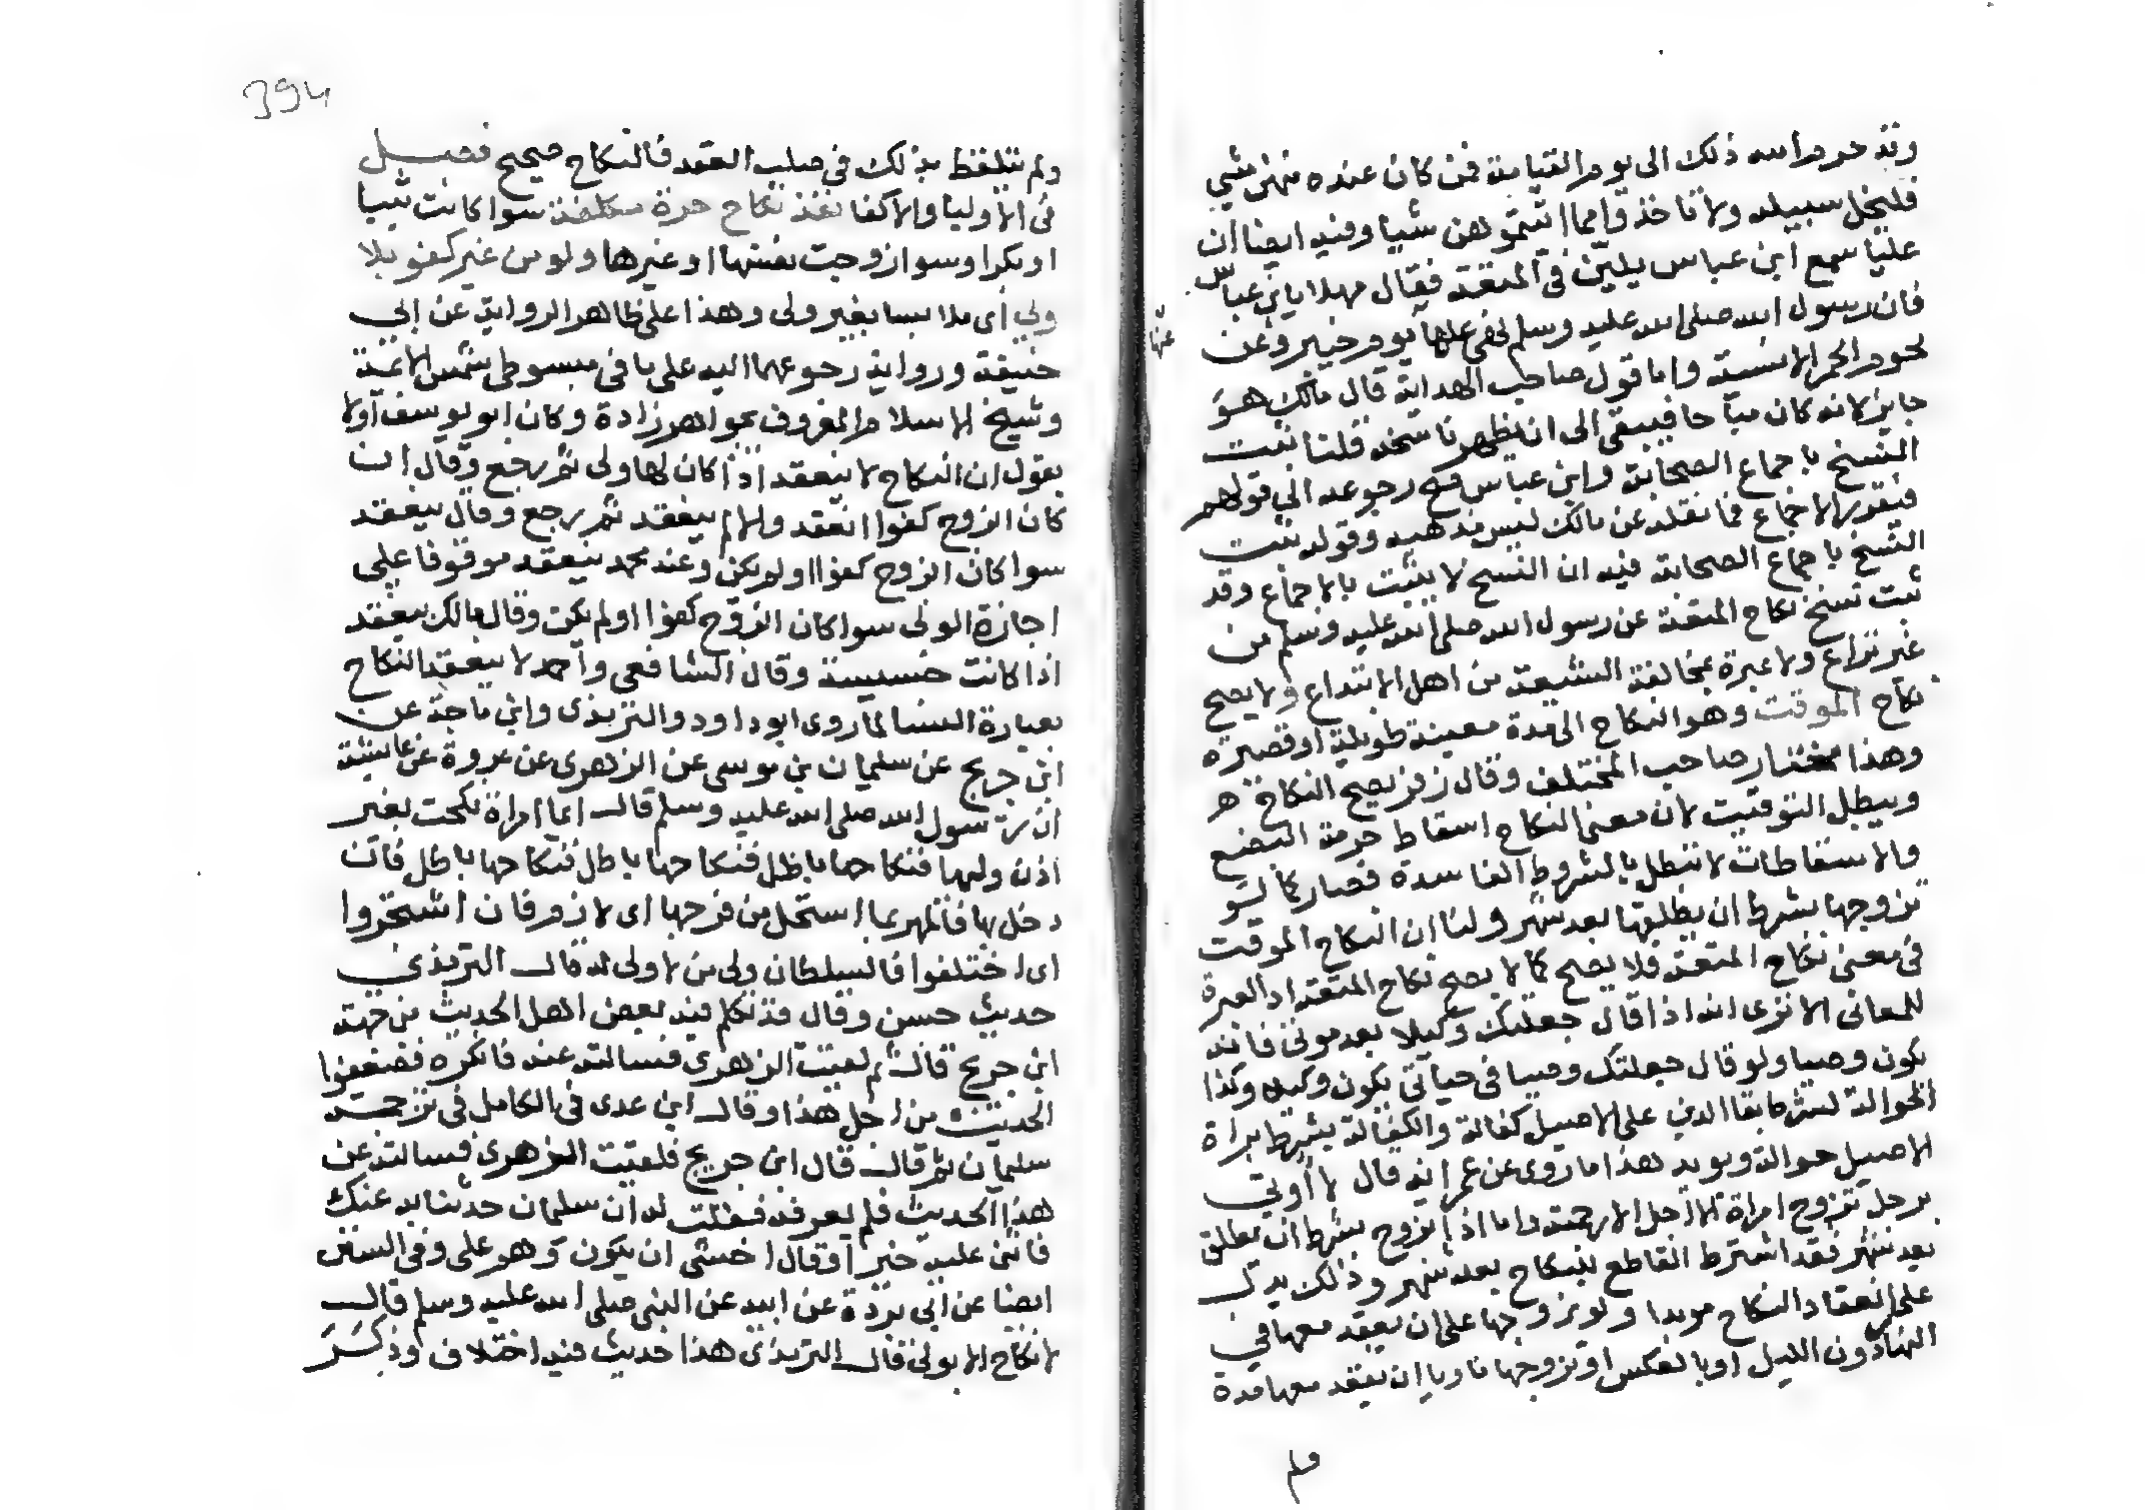 وقد حرم الله ذلك الى يوم القيامة فمن كان عنده منهن شي
فليخل سبيله ولا تاخذوا مما اتيتموهن شيا وفيه ايضا ان
عليا سمع ابن عباس يلين في المتعة فقال مهلا يا ابن عباس
فان رسول الله صلى الله عليه وسلم نهى عنها يوم خيبر وعن
عنها
لحوم الحمر الانسية واما قول صاحب الهداية قال مالك هو
جايز لانه كان مباحا فيبقى الى ان يظهر ناسخه قلنا ثبت
النسخ باجماع الصحابة وابن عباس صح رجوعه الى قولهم
فتقرر الاجماع فما نقله عن مالك ليس مذهبه وقوله ثبت
النسخ باجماع الصحابة فيه ان النسخ لا يثبت بالاجماع وقد
ثبت نسخ نكاح المتعة عن رسول الله صلى الله عليه وسلم من
غير نزاع ولا عبرة بمخالفة الشيعة من اهل الابتداع ولا يصح
نكاح الموقت وهو النكاح الى مدة معينة طويلة او قصيرة
وهذا مختار صاحب المختلف وقال زفر يصح النكاح
ويبطل التوقيت لان معنى النكاح اسقاط حرمة البضع
والاسقاطات لا تبطل بالشروط الفاسدة فصار كما لو
تزوجها بشرط ان يطلقها بعد شهر ولنا ان النكاح الموقت
في معنى نكاح المتعة فلا يصح كما لا يصح نكاح المتعة اذ العبرة
للمعاني الا ترى انه اذا قال جعلتك وكيلا بعد موتى فانه
يكون وصيا ولو قال جعلتك وصيا في حياتي يكون وكيلا وكذا
الحوالة بشرط بقا الدين على الاصيل كفالة والكفالة بشرط براة
الاصيل حوالة ويويد هذا ما روى عن عمر انه قال لا اوتي
برجل تزوج امراة الى اجل الا رجمته واما اذا تزوج بشرط ان يطلق
بعد شهر فقد اشترط القاطع للنكاح بعد شهر وذلك يدل
على انعقاد النكاح موبدا ولو تزوجها على ان يقعد معها في
النهار دون الليل او بالعكس او تزوجها ناويا ان يقعد معها مدة
ولم
394
ولم يتلفظ بذلك في صلب العقد فالنكاح صحيح فصل
في الاوليا والاكفا نفذ نكاح حرة مكلفة سوا كانت ثيبا
او بكرا وسوا زوجت نفسها او غيرها ولو من غير كفو بلا
ولي اي ملابسا بغير ولى وهذا على ظاهر الرواية عن ابي
حنيفة ورواية رجوعهما اليه على ما في مبسوطي شمس الائمة
وشيخ الاسلام المعروف بخواهر زادة وكان ابو يوسف اولا
يقول ان النكاح لا ينعقد اذا كان لها ولى ثم رجع وقال ان
كان الزوج كفوا انعقد والا لم ينعقد ثم رجع وقال ينعقد
سوا كان الزوج كفوا او لم يكن وعند محمد ينعقد موقوفا على
اجازة الولى سوا كان الزوج كفوا او لم يكن وقال مالك ينعقد
اذا كانت خسيسة وقال الشافعي واحمد لا ينعقد النكاح
بعبارة النسا لما روى ابو داود والترمذى وابن ماجة عن
ابن جريج عن سليمان بن موسى عن الزهرى عن عروة عن عائشة
ان رسول الله صلى الله عليه وسلم قال ايما امراة نكحت بغير
اذن وليها فنكاحها باطل فنكاحها باطل فنكاحها باطل فان
دخل بها فالمهر بما استحل من فرجها اي لازم وفان اشتجروا
اى اختلفوا فالسلطان ولى من لا ولى له قال الترمذي
حديث حسن وقال قد تكلم فيه بعض اهل الحديث من جهة
ابن جريج قال ثم لقيت الزهرى فسالته عنه فانكره فضعفوا
الحديث من اجل هذا وقال ابن عدى في الكامل في ترجمة
سليمان ثم قال قال ابن جريج فلقيت الزهرى فسالته عن
هذا الحديث فلم يعرفه فقلت له ان سليمان حدثنا به عنك
فاثنى عليه خيرا وقال اخشى ان يكون وهو على وفي السنن
ايضا عن ابي بردة عن ابيه عن النبي صلى الله عليه وسلم قال
لا نكاح الا بولى قال الترمذى هذا حديث فيه اختلاف وذكر